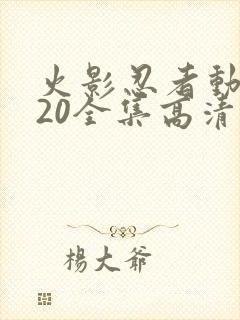 火影忍者動
20全集高清
楊大爺